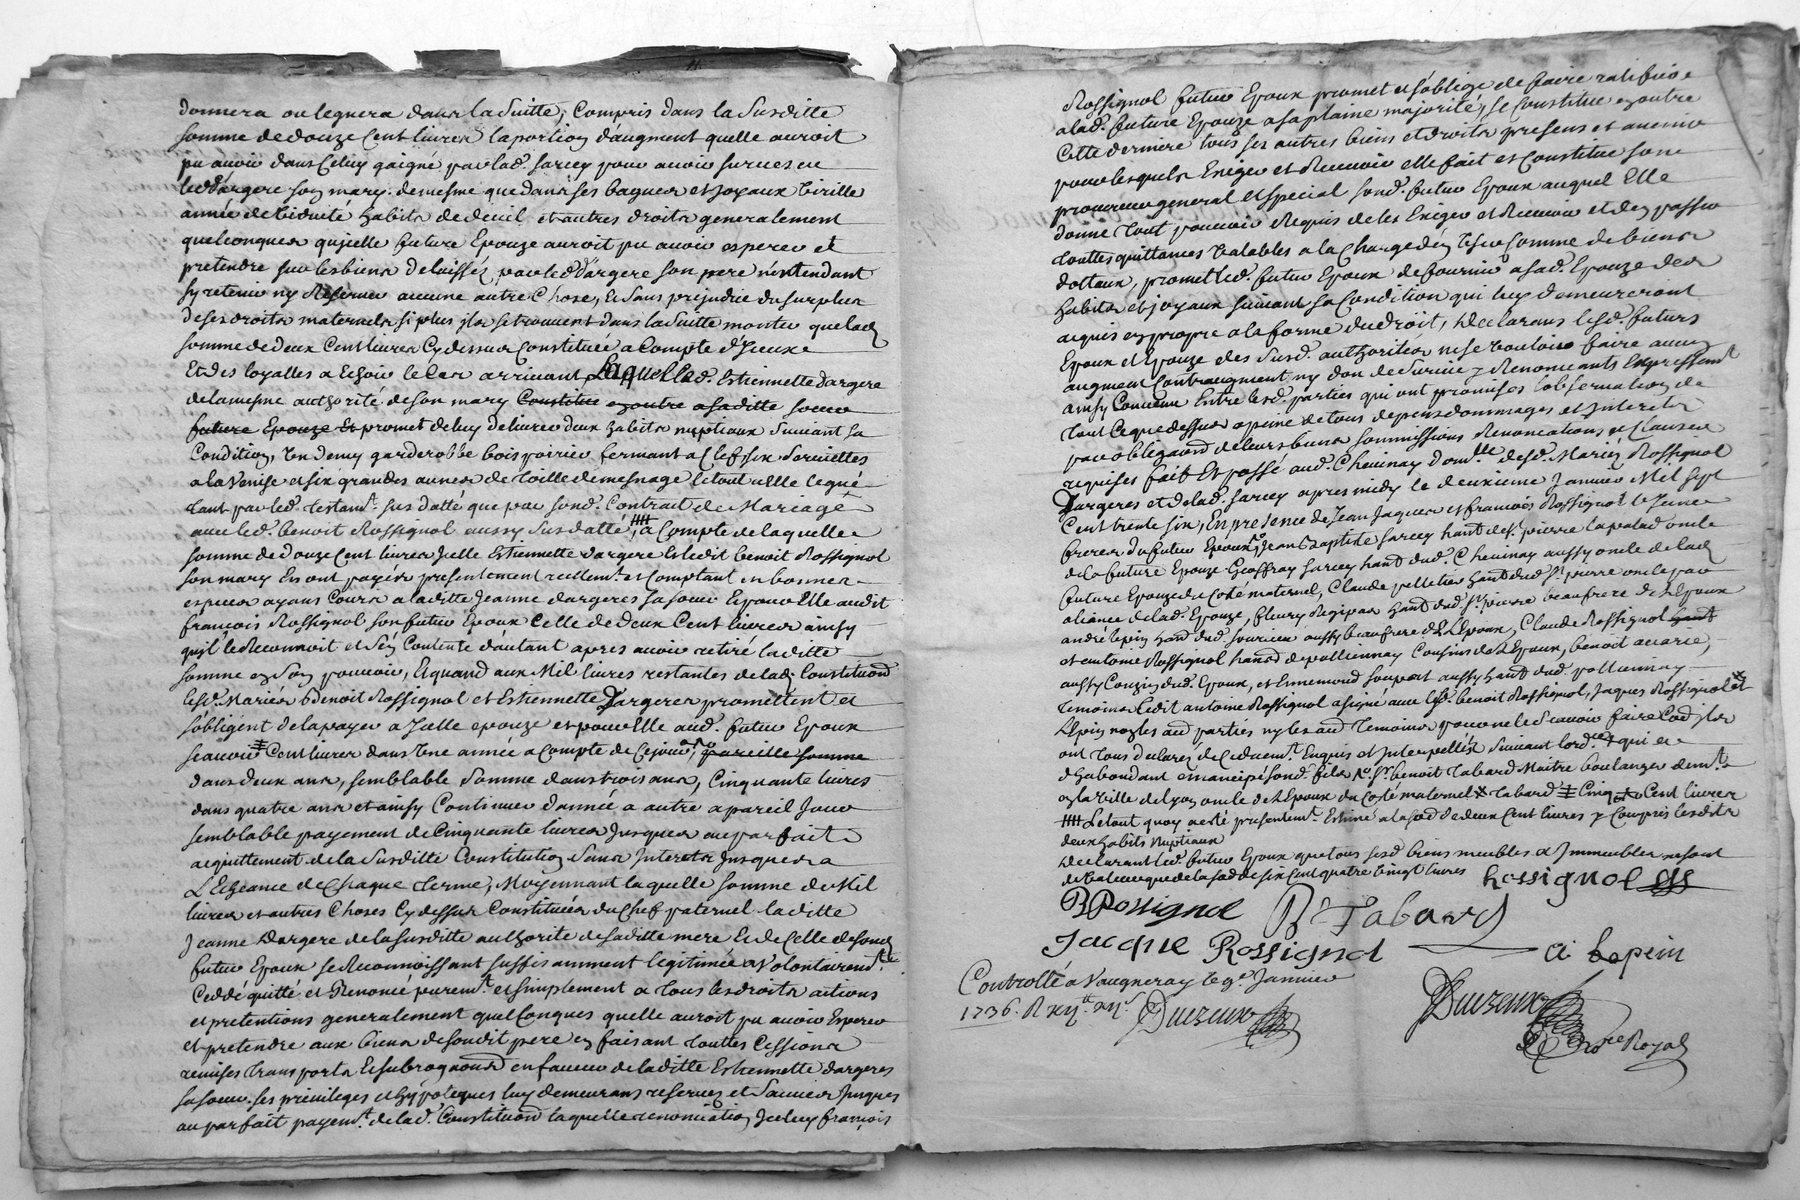 donnera ou leguera dans la Suitte, Compris dans la Susditte
somme de douze Cent livres la portion daugment quelle auroit
pu avoir dans Celuy gaigné par lad. sarcey pour avoir survescu
led. dargere son mary. demesme que dans ses bagues et joyaux
année de viduité habits de deuil et autres droits generalement
quelconques qu'icelle future Epouze auroit pu avoir esperer et
pretendre sur les biens delaissés par led. dargere son pere n'entendant
sy retenir ny Reserver aucune autre Chose, Et sans prejudice du surplus
de ses droits maternels si plus ils se trouvent dans la Suitte monter que lad.
somme de deux Cent livres Cy dessus Constituée a Compte d'Iceux
Et des loyalles a Echoir le Cas arrivant Laquelle lad. Estiennette dargere
de la mesme authorité de son mary Constitue en outre a saditte soeur
future Epouze Et promet de luy delivrer deux habits nuptiaux Suivant sa
Condition, Un demy garderobbe bois poirier fermant a Clef six Serviettes
a la Venise et six grandes aunes de Toille de mesnage le tout a Elle legué
tant par led. Testam.t sus datté que par sond. Contrat de Mariage
avec led. benoit Rossignol aussy Susdatté, a Compte de laquelle
somme de douze Cent livres Icelle Estiennette dargere Et ledit benoit Rossignol
son mary En ont payés presentement reellem.t et Comptant en bonnes
especes ayans Cours a laditte Jeanne dargeres sa soeur Et pour Elle audit
françois Rossignol son futur Epoux Celle de deux Cent livres ainsy
qu'il le Reconnoit et s'en Contente d'autant apres avoir retiré laditte
Somme en Son pouvoir, Et quand aux Mil livres restantes de lad. Constitution
lesd. Mariés benoit Rossignol et Estiennette Dargeres promettent et
s'obligent de la payer a Icelle epouze et pour Elle aud. futur Epoux
sçavoir Cent livres dans Une année a Compte de Cejour, pareille Somme
dans deux ans, semblable Somme dans trois ans, Cinquante livres
dans quatre ans et ainsy Continuer d'année a autre a pareil Jour
semblable payement de Cinquante livres Jusques au parfait
acquittement de la Susditte Constitution Sans Interets Jusques a
L'Echeance de Chaque terme, Moyennant laquelle somme de Mil
livres et autres Choses Cy dessus Constituées du Chef paternel laditte
Jeanne Dargere de la susditte authorité de saditte mere Et de Celle de sond.
futur Epoux se Reconnoissant suffisamment legitimée a Volontairem.t
Ceddé quitté et Renoncé purem.t et simplement a Tous les droits actions
et pretentions generalement quelconques quelle auroit pu avoir Esperer
et pretendre aux biens de sondit pere en faisant Touttes Cessions
remises transports Et subrogations en faveur de laditte Estiennette dargeres
sa soeur. ses privileges et hypoteques luy demeurans reservez et Sauves Jusques
au parfait payem.t de lad. Constitution laquelle renonciation Iceluy françois
Rossignol futur Epoux promet et s'oblige de faire ratifier
a lad. future Epouze a sa plaine majorité, se Constitue en outre
Cette derniere tous ses autres biens et droits presens et avenir
pour lesquels Exiger et Recevoir elle fait et Constitue son
procureur general et special sond. futur Epoux auquel Elle
donne Tout pouvoir Requis de les Exiger et Recevoir et d'en passer
touttes quittances Valables a la Charge d'en User Comme de biens
dottaux, promet led. futur Epoux de fournir a sad. Epouze des
habits et joyaux suivant sa Condition qui luy demeureront
acquis en propre a la forme du droit, declarans lesd. futurs
Epoux et Epouze des Susd. authorités ne se vouloir faire aucun
augment Contraugment ny don de Survie y Renonceants Expressem.t
ainsy Convenu Entre lesd. parties qui ont promises l'observation de
tout Ce que dessus a peine de tous depens dommages et Interets
par obligaõns de leurs biens sommissions Renonciations et Clauses
requises fait Et passé aud. Chevinay domlle desd. Mariés Rossignol
Dargeres et de lad. sarcey apres midy le deuxieme Janvier Mil sept
Cent trente six, En presence de Jean Jaques et françois Rossignol le Jeune
freres du futur Epoux, Jean Baptiste sarcey habt de St. pierre lapalud oncle
de la future Epouze Geoffray sarcey habt dud. Chevinay aussy oncle de lad.
future Epouze du Coté maternel, Claude pelletier habt dud. St. pierre oncle par
aliance de lad. Epouze, fleury habt dud. St. pierre beaufrere de l'Epoux
andré lepin habt dud. sourcieu aussy beaufrere de l'Epoux, Claude Rossignol habt
et antoine Rossignol habt de pollionnay Cousins de l'Epoux, benoit
aussy Couzin dud. Epoux, et Ennemond aussy habt dud. pollionnay
temoins Ledit antoine Rossignol a signé avec led. Sr. benoit Rossignol, Jaques Rossignol et
Lepin non les aud. parties ny les aud. Temoins pour ne le Sçavoir faire Comme ils
ont Tous declarés de Ce duem.t Enquis et Interpellés Suivant lord.ce qui a
d'habondant emancipé sond. fils Sr. benoit Tabard Maitre boulanger demt.
en la Ville de Lyon oncle de l'Epoux du Coté maternel Tabard Cinq Cent livres
Letout quoy a eté presentem.t Estimé a la somme de deux Cent livres y Compris lesdits
deux habits Nuptiaux
declarant led. futur Epoux que tous sesd. biens meubles et Immeubles ne sont
de Valeur que de la somme de six Cent quatre vingt livres Rossignol
B Rossignol B Tabard
Jacque Rossignol a Lepein
Controllé à Vaugneray le 9e. Janvier
1736. R
No.re Royal